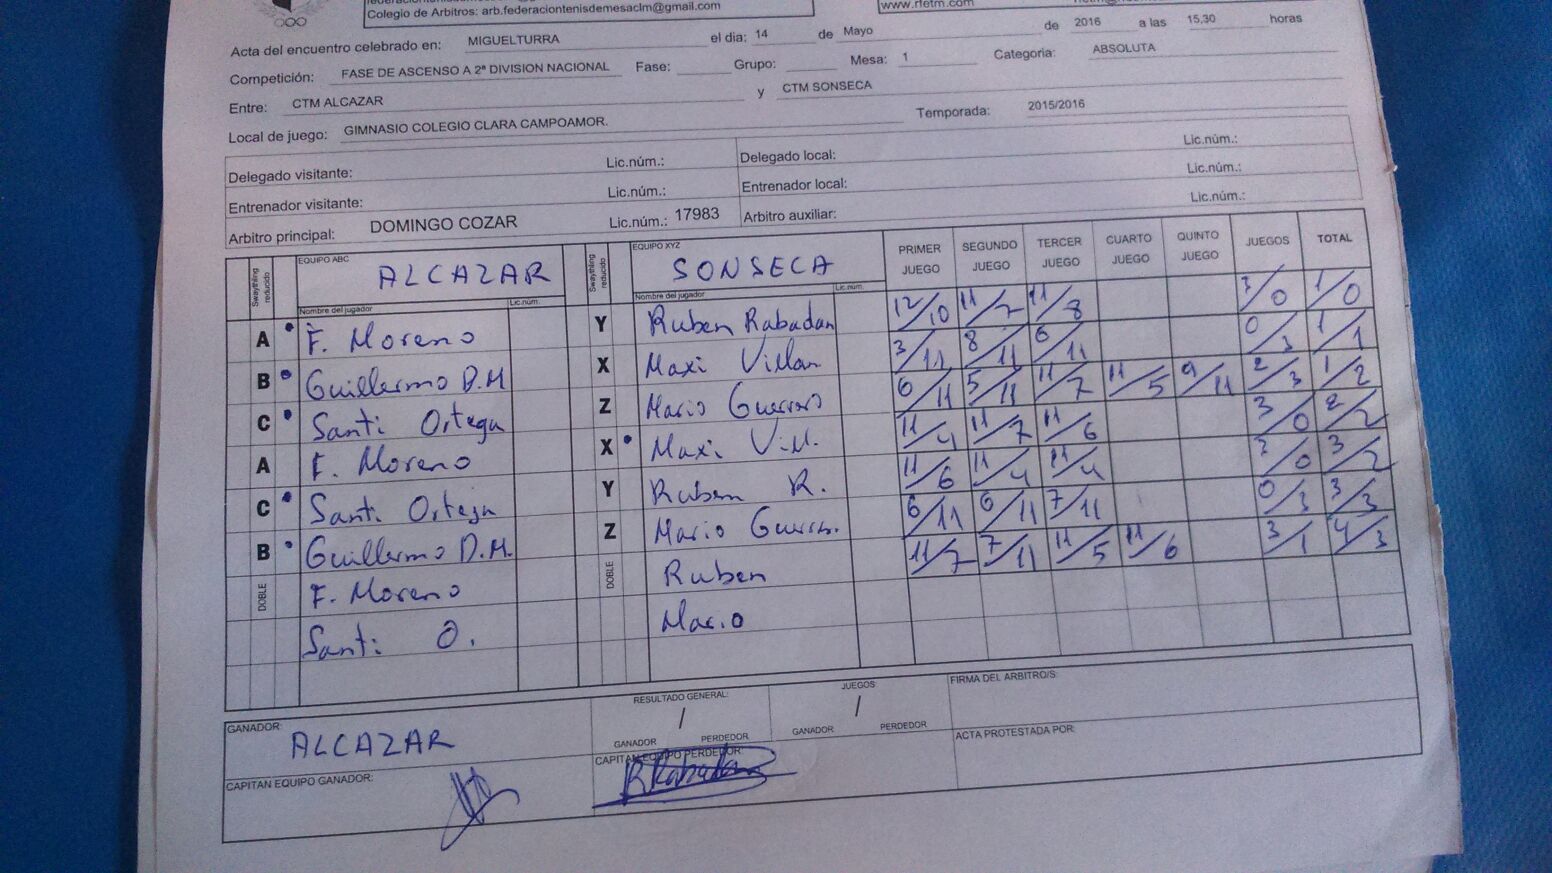 Colegio de Arbitros: arb.federaciontenisdemesaclm@gmail.com www.rfetm.com
Acta del encuentro celebrado en: MIGUELTURRA el dia: 14 de Mayo de 2016 a las 15,30 horas
Competición: FASE DE ASCENSO A 2ª DIVISION NACIONAL Fase: Grupo: Mesa: 1 Categoria: ABSOLUTA
Entre: CTM ALCAZAR y CTM SONSECA
Local de juego: GIMNASIO COLEGIO CLARA CAMPOAMOR. Temporada: 2015/2016
Delegado visitante: Lic.núm.: Delegado local: Lic.núm.:
Entrenador visitante: Lic.núm.: Entrenador local: Lic.núm.:
Arbitro principal: DOMINGO COZAR Lic.núm.: 17983 Arbitro auxiliar: Lic.núm.:
Swaythling reducido EQUIPO ABC ALCAZAR Swaythling reducido EQUIPO XYZ SONSECA PRIMER JUEGO SEGUNDO JUEGO TERCER JUEGO CUARTO JUEGO QUINTO JUEGO JUEGOS TOTAL
Nombre del jugador Lic.núm. Nombre del jugador Lic.núm.
A F. Moreno Y Ruben Rabadan 12/10 11/7 11/8 3/0 1/0
B Guillermo D.M X Maxi Villan 3/11 8/11 6/11 0/3 1/1
C Santi Ortega Z Mario Guerrero 6/11 5/11 11/7 11/5 9/11 2/3 1/2
A F. Moreno X Maxi Vill. 11/4 11/7 11/6 3/0 2/2
C Santi Ortega Y Ruben R. 11/6 11/4 11/4 3/0 3/2
B Guillermo D.M. Z Mario Guerre. 6/11 6/11 7/11 0/3 3/3
DOBLE F. Moreno DOBLE Ruben 11/7 7/11 11/5 11/6 3/1 4/3
Santi O. Mario
GANADOR: ALCAZAR RESULTADO GENERAL: / GANADOR PERDEDOR JUEGOS: / GANADOR PERDEDOR FIRMA DEL ARBITRO/S:
CAPITAN EQUIPO GANADOR: CAPITAN EQUIPO PERDEDOR: RRabadan ACTA PROTESTADA POR: